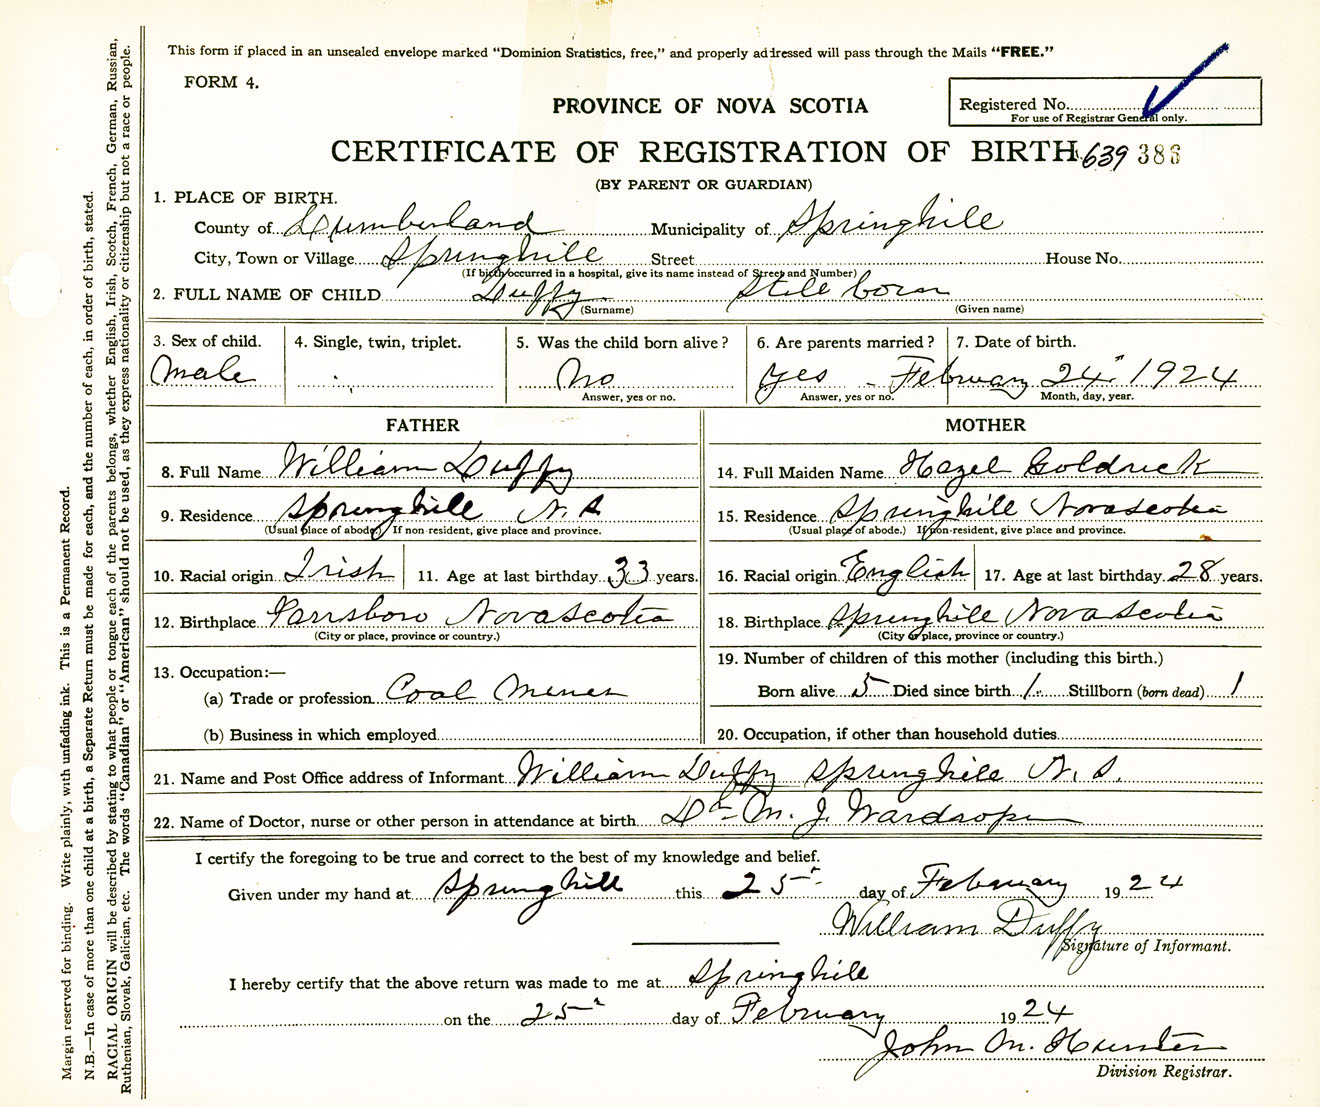 This form if placed in an unsealed envelope marked “Dominion Sratistics, free,” and properly addressed will pass through the Mails “FREE.”
FORM 4.
PROVINCE OF NOVA SCOTIA
Registered No.
For use of Registrar General only.
CERTIFICATE OF REGISTRATION OF BIRTH 639 386
(BY PARENT OR GUARDIAN)
1. PLACE OF BIRTH.
County of Cumberland Municipality of Springhill
City, Town or Village Springhill Street House No.
(If birth occurred in a hospital, give its name instead of Street and Number)
2. FULL NAME OF CHILD Duffy Still born
(Surname) (Given name)
3. Sex of child. 4. Single, twin, triplet. 5. Was the child born alive? 6. Are parents married? 7. Date of birth.
Male No Yes February 24" 1924
Answer, yes or no. Answer, yes or no. Month, day, year.
FATHER
8. Full Name William Duffy
9. Residence Springhill N. S
(Usual place of abode) If non-resident, give place and province.
10. Racial origin Irish 11. Age at last birthday 33 years.
12. Birthplace Parrsboro Nova Scotia
(City or place, province or country.)
13. Occupation:—
(a) Trade or profession Coal Miner
(b) Business in which employed
MOTHER
14. Full Maiden Name Hazel Goldrick
15. Residence Springhill Nova Scotia
(Usual place of abode.) If non-resident, give place and province.
16. Racial origin English 17. Age at last birthday 28 years.
18. Birthplace Springhill Nova Scotia
(City or place, province or country.)
19. Number of children of this mother (including this birth.)
Born alive 5 Died since birth 1 Stillborn (born dead) 1
20. Occupation, if other than household duties
21. Name and Post Office address of Informant William Duffy Springhill N. S.
22. Name of Doctor, nurse or other person in attendance at birth Dr M. J. Wardrope
I certify the foregoing to be true and correct to the best of my knowledge and belief.
Given under my hand at Springhill this 25" day of February 1924
William Duffy
Signature of Informant.
I hereby certify that the above return was made to me at Springhill
on the 25" day of February 1924
John M. Hunter
Division Registrar.
Margin reserved for binding. Write plainly, with unfading ink. This is a Permanent Record.
N.B.—In case of more than one child at a birth, a Separate Return must be made for each, and the number of each, in order of birth, stated.
RACIAL ORIGIN will be described by stating to what people or tongue each of the parents belongs, whether English, Irish, Scotch, French, German, Russian,
Ruthenian, Slovak, Galician, etc. The words “Canadian” or “American” should not be used, as they express nationality or citizenship but not a race or people.